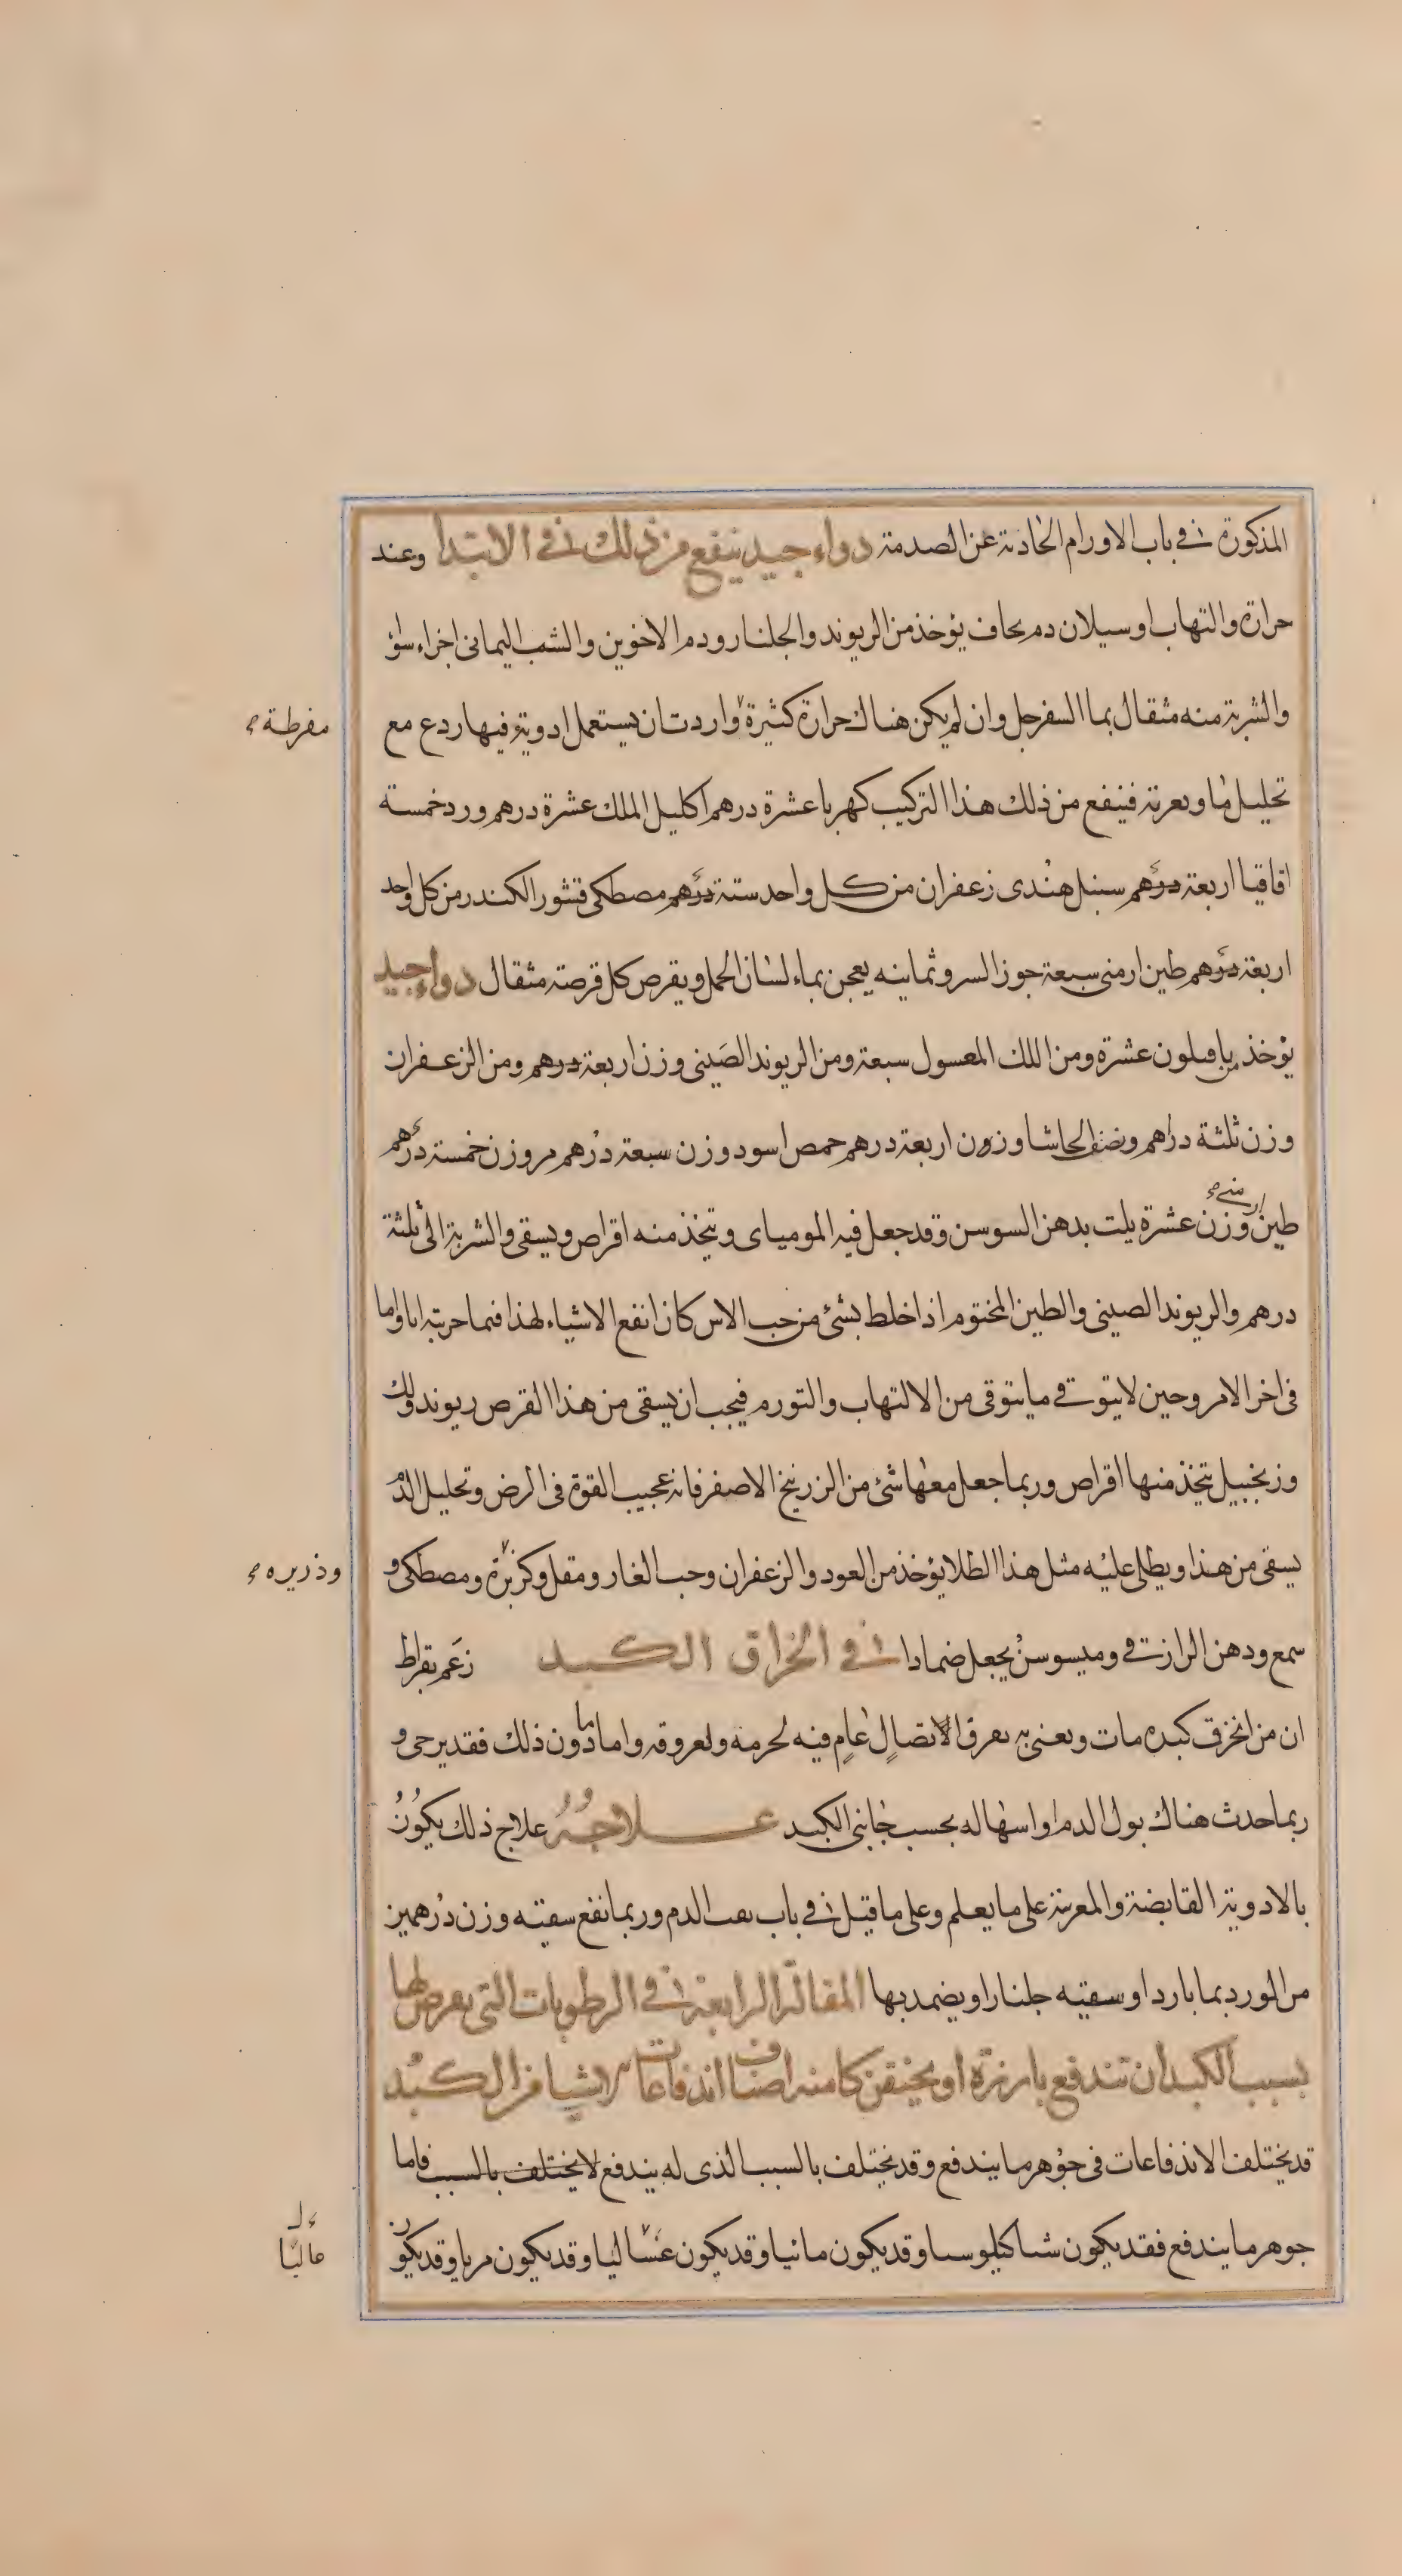 المذكورة فى باب الاورام الحادثة عن الصدمة دواء جيد ينفع من ذلك فى الابتدا وعند
حرارة والتهاب او سيلان دم يخاف يؤخذ من الريوند والجلنار ودم الاخوين والشب اليمانى اجزاء سوا
والشربة منه مثقال بما السفرجل وان لم يكن هناك حرارة كثيرة واردت ان يستعمل ادوية فيها ردع مع
مفرطة
تحليل ما وتغرية فينفع من ذلك هذا التركيب كهربا عشرة درهم اكليل الملك عشرة درهم ورد خمسة
اقاقيا اربعة درهم سنبل هندى زعفران من كل واحد ستة درهم مصطكى قشور الكندر من كل واحد
اربعة درهم طين ارمنى سبعة جوز السرو ثمانيه يعجن بماء لسان الحمل ويقرص كل قرصة مثقال دواء جيد
يؤخذ من عشرة ومن اللك المغسول سبعة ومن الريوند الصينى وزن اربعة درهم ومن الزعفران
وزن ثلثة دراهم ونصف الحاشا وزن اربعة درهم حمص اسود وزن سبعة درهم مر وزن خمسة درهم
طين ارمنى وزن عشرة يلت بدهن السوسن وقد جعل فيه المومياى ويتخذ منه اقراص ويسقى والشربة الى ثلثة
درهم والريوند الصينى والطين المختوم اذا خلط بشئ من حب الاس كان انفع الاشياء لهذا فيما جربته انا واما
فى اخر الامر وحين لا يتوقى ما يتوقى من الالتهاب والتورم فيجب ان يسقى من هذا القرص ريوند ولك
وزنجبيل يتخذ منها اقراص وربما جعل معها شئ من الزرنيخ الاصفر فانه عجيب القوة فى الرض وتحليل الدم
يسقى من هذا ويطلى عليه مثل هذا الطلا يؤخذ من العود والزعفران وحب الغار ومقل وكزبرة ومصطكى و
وذريره
شمع ودهن الرازقى وميسوسن يجعل ضمادا فى انخراق الكبد زعم بقراط
ان من انخرق كبده مات ويعنى به تفرق الاتصال عام فيه لجرمه ولعروقه واما ما دون ذلك فقد يرجى و
ربما حدث هناك بول الدم او اسهاله بحسب جانبى الكبد علاجه علاج ذلك يكون
بالادوية القابضة والمغرية على ما يعلم وعلى ما قيل فى باب نفث الدم وربما نفع سقيه وزن درهمين
من الورد بما بارد او سقيه جلنارا ويضمد بها المقالة الرابعة فى الرطوبات التى يعرض لها
بسبب الكبد ان تندفع بارزة او يحتقن كامنه اصناف اندفاعات الاشيا من الكبد
قد يختلف الاندفاعات فى جوهر ما يندفع وقد يختلف بالسبب الذى له يندفع لا يختلف بالسبب فاما
جوهر ما يندفع فقد يكون شيا كيلوسيا وقد يكون مائيا وقد يكون غساليا وقد يكون مريا وقد يكون